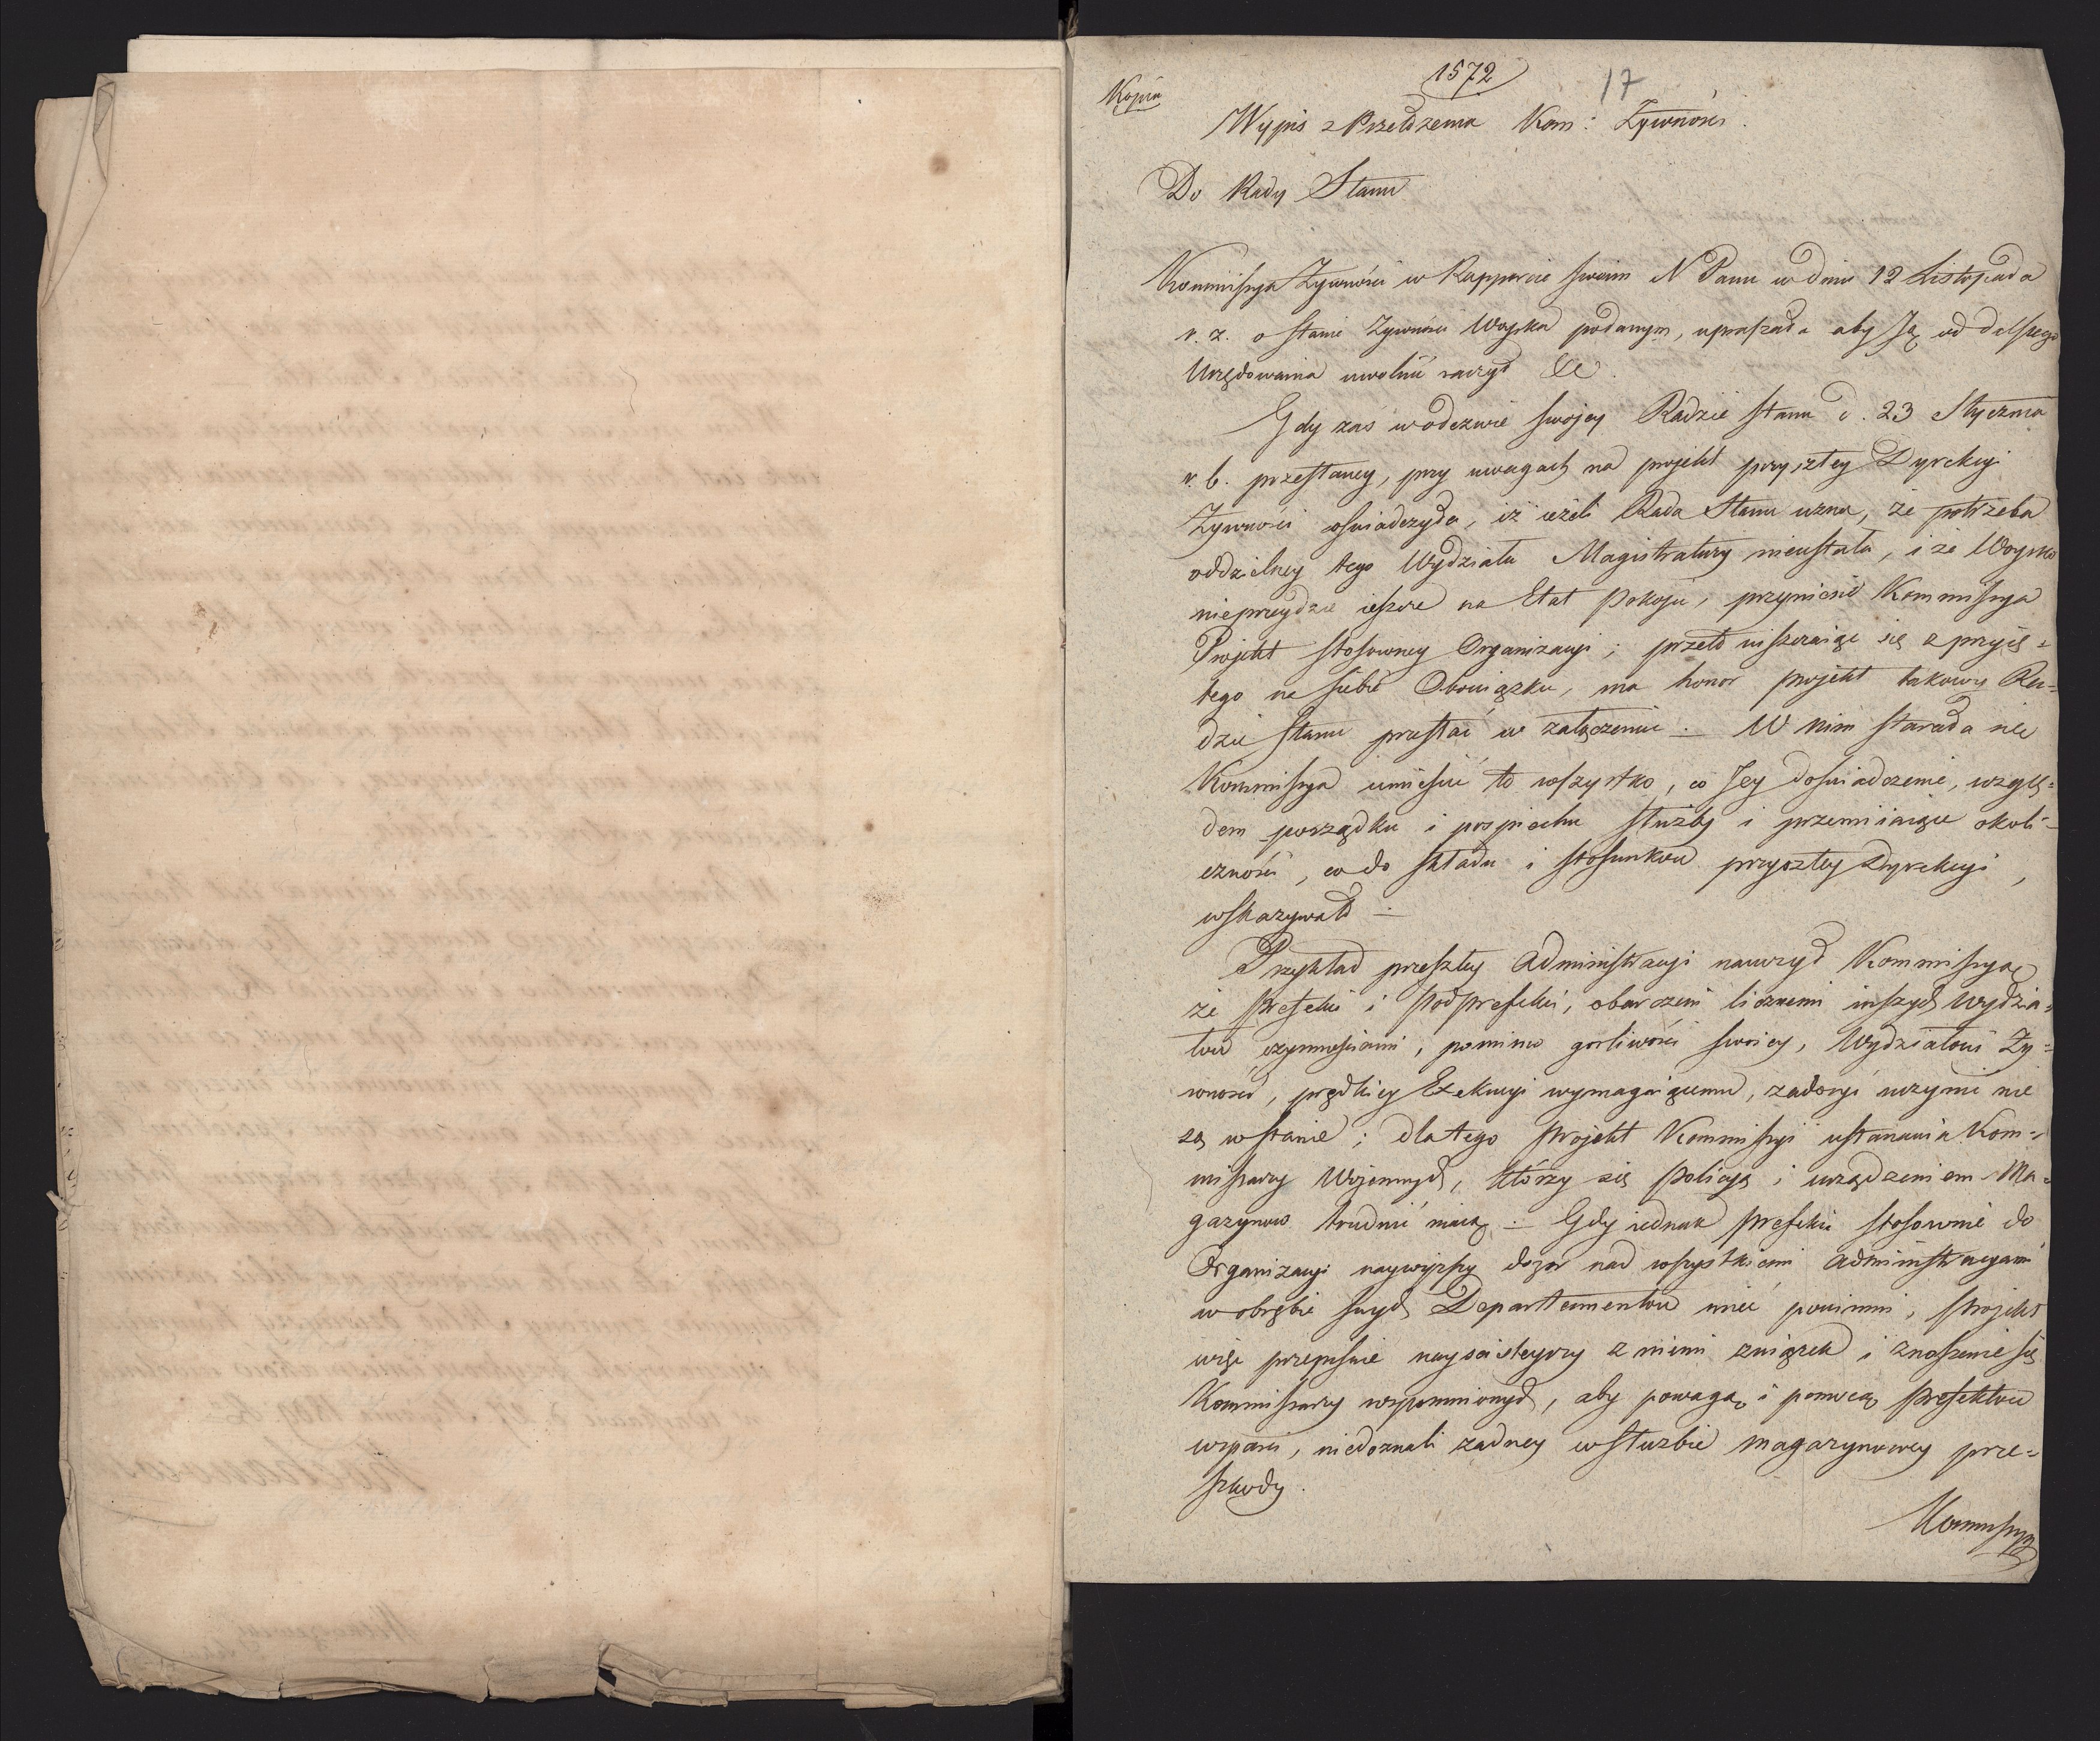 1572
17
Kopia
Wypis z Przełożenia Kom: Żywności.
Do Rady Stanu
Kommissya Żywności w Rapporcie swoim N Panu w dniu 12 Listopada
r. z. o stanie Żywności Woyska podanym, upraszała aby Ją od dalszego
Urzędowania uwolnić raczył &c.
Gdy zaś w odezwie swojey Radzie Stanu d. 23 Stycznia
r. b. przesłaney, przy uwagach nad projekt przyszłey Dyrekcyi
Żywności oświadczyła, iż ieżeli Rada Stanu uzna, że potrzeba
oddzielney tego Wydziału Magistratury nieustała, i że Woysko
nieprzeydzie ieszcze na Etat Pokoju, przyniesie Kommissya
Projekt stosowney Organizacyi; przeto uiszczaiąc się z przyię=
tego na siebie Obowiązku, ma honor projekt takowy Ra=
dzie Stanu przesłać w załączeniu. — W nim starała się
Kommissya umieścić to wszystko, co Jey doświadczenie, wzglę=
dem porządku i pospiechu służby i przemiiaiące okoli=
czności, co do składu i stosunków przyszłey Dyrekcyi,
wskazywało —
Przykład przeszłey Administracyi nauczył Kommissyą
że Prefekci i Podprefekci, obarczeni licznemi inszych Wydzia=
łów czynnościami, pomimo gorliwości swoiey, Wydziałowi Ży=
wności, prędkiey Exekucyi wymagaiącemu, zadosyć uczynić nie
są w stanie; dlatego Projekt Kommissyi ustanawia Kom=
missarzy Wojennych, którzy się Policyą i urządzeniem Ma=
gazynów trudnić maią — Gdy iednak Prefekci stosownie do
Organizacyi naywyższy dozór nad wszystkiemi Administracyami
w obrębie swych Departamentów mieć powinni, Projekt
więc przepisuie nayściśleyszy z niemi związek i znoszenie się
Kommissarzy wspomnionych, aby powagą i pomocą Prefektów
wsparci, niedoznali żadney w służbie magazynowey prze=
szkody.
Kommissya